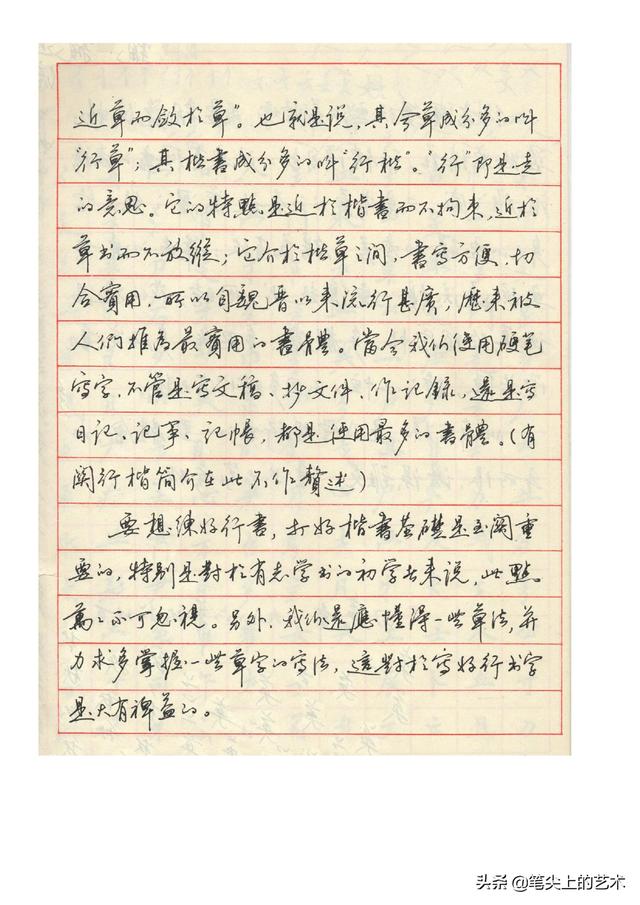 近草而敛於草”。也就是说,其含草成分多的叫
“行草”;其楷書成分多的叫“行楷”。“行”即是走
的意思。它的特點是近於楷書而不拘束,近於
草书而不放縱;它介於楷草之间,書写方便,切
合實用,所以自魏晋以来流行甚廣,歷来被
人们推為最實用的書體。當今我们使用硬笔
写字,不管是写文稿、抄文件、作记録,還是写
日记、记事、记帳,都是使用最多的書體。(有
関行楷简介在此不作贅述)
要想練好行書,打好楷書基礎是至関重
要的,特别是對於有志学书的初学者来说,此點
萬万不可忽視。另外,我们還應懂得一些草法,并
力求多掌握一些草字的写法,這對於写好行书字
是大有裨益的。
头条 @笔尖上的艺术